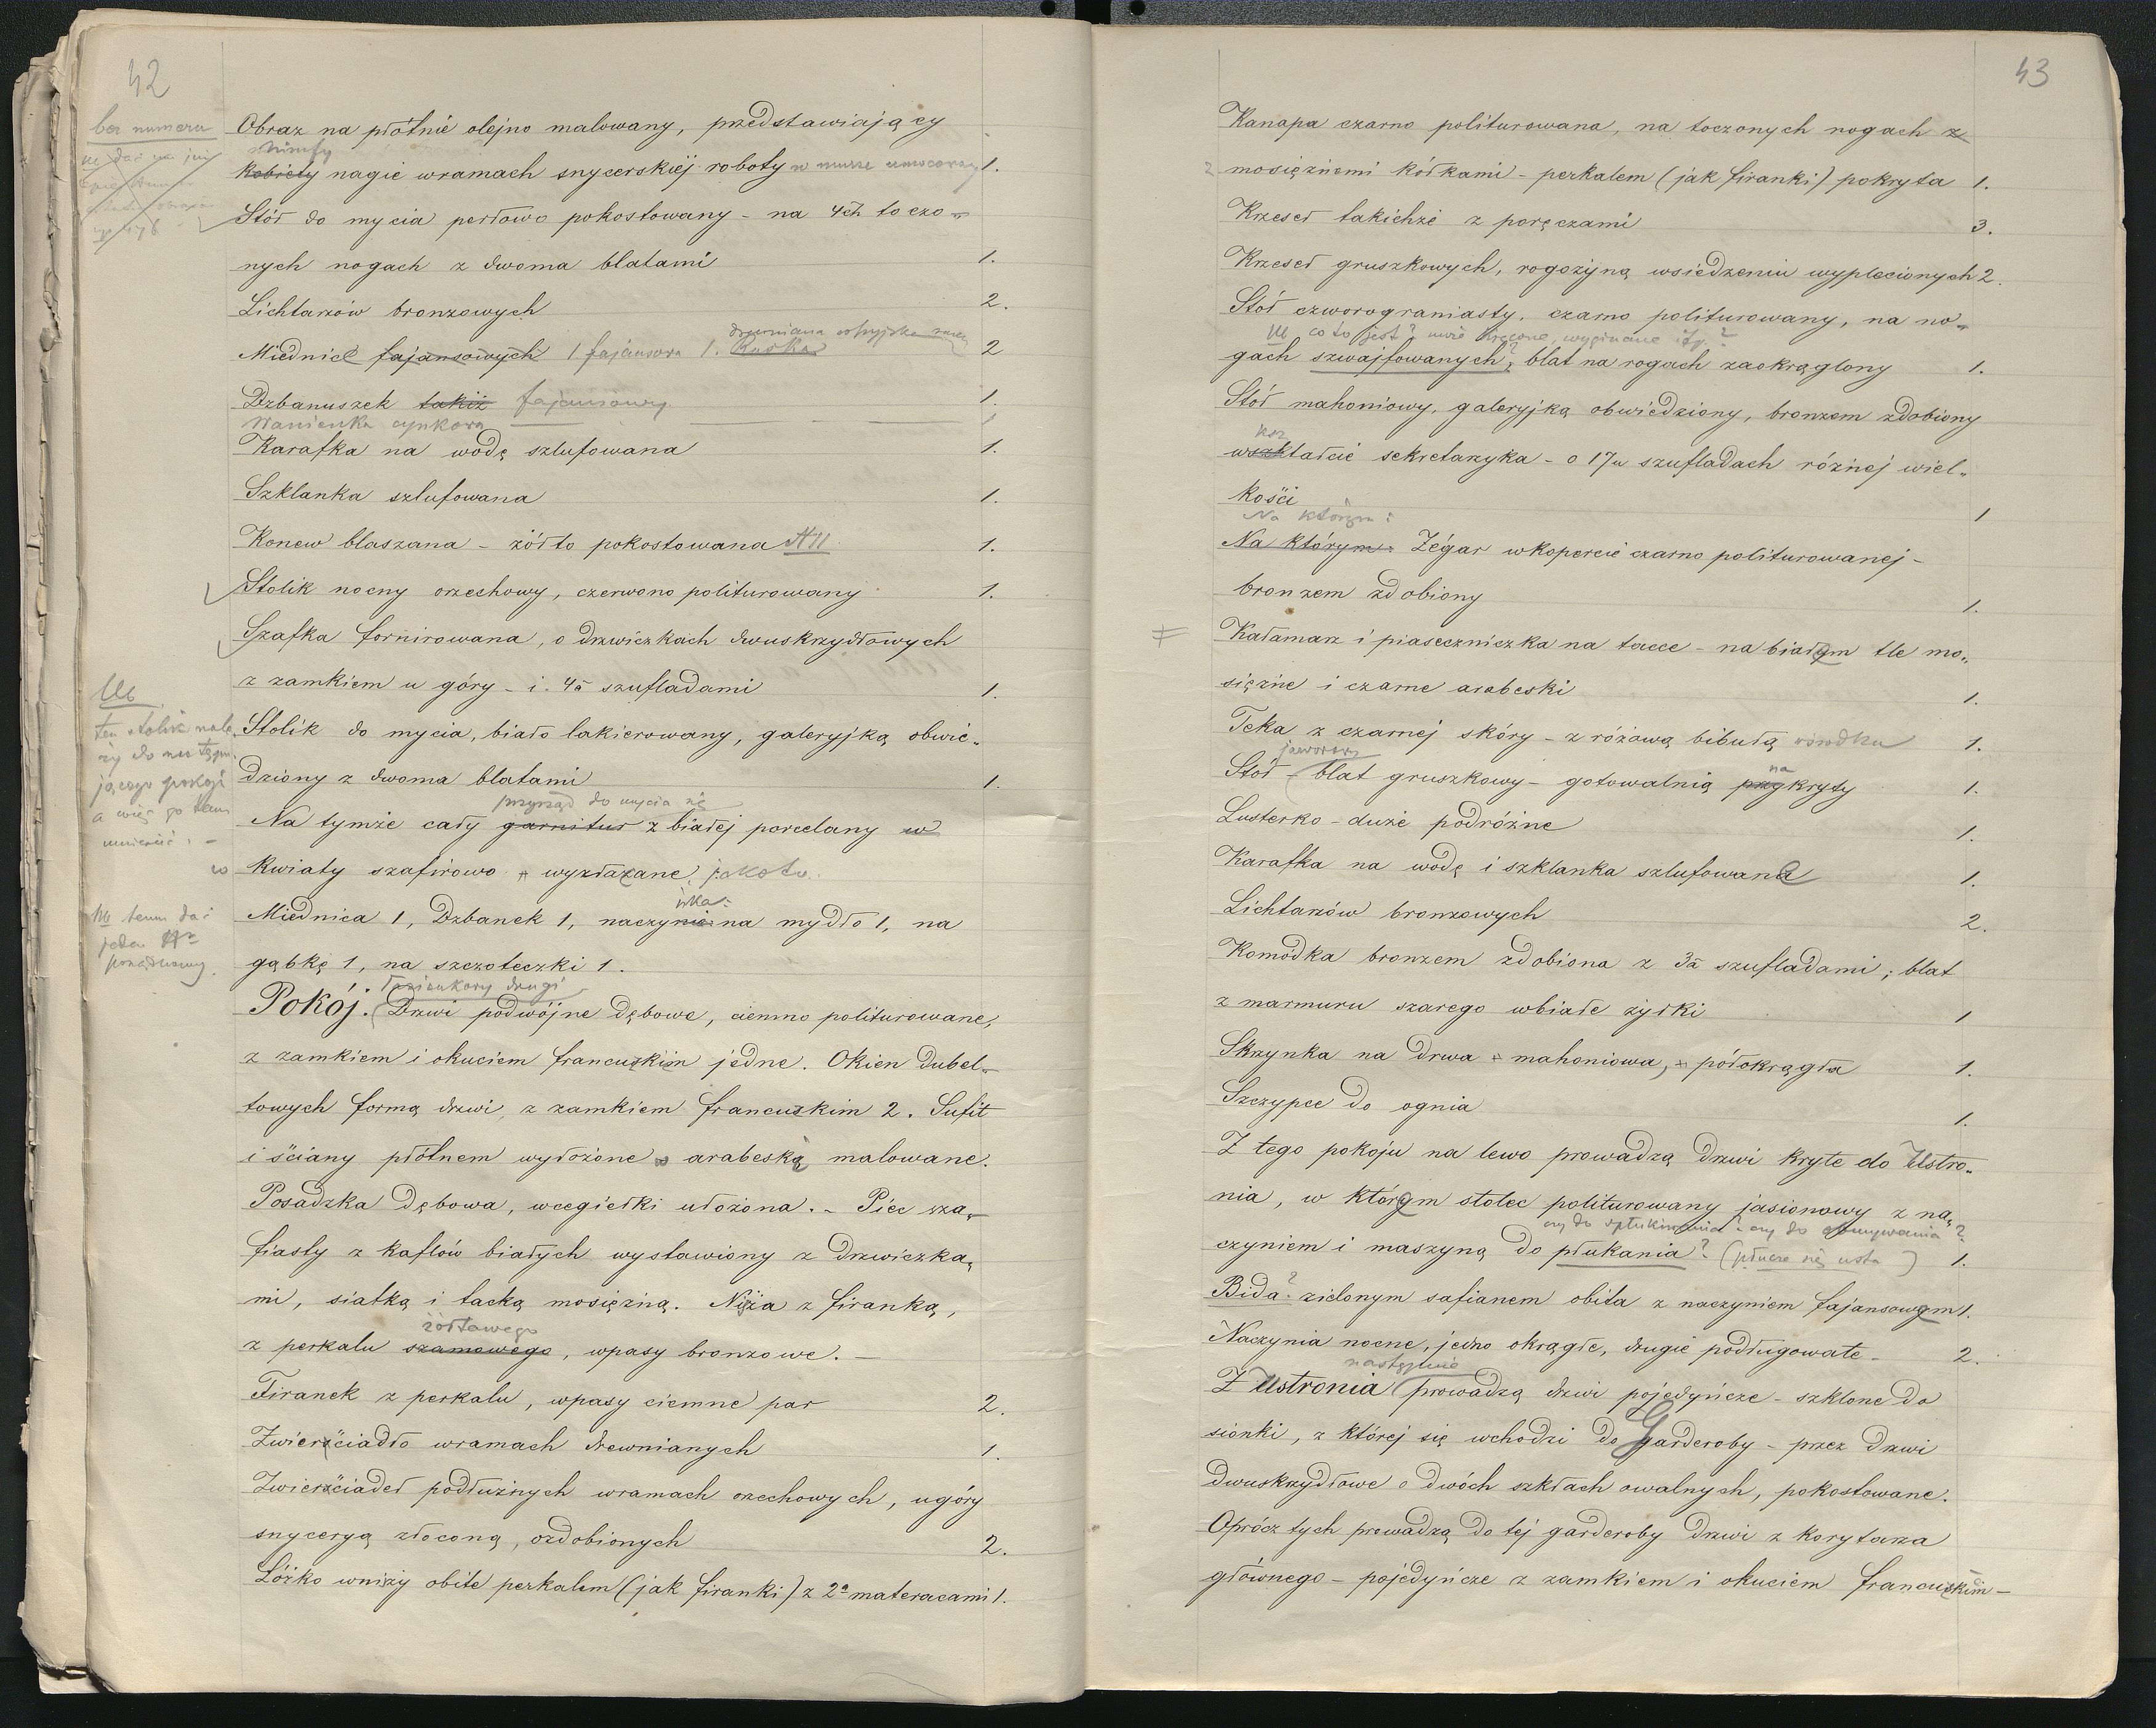 42
bez numeru
Obraz na płótnie olejno malowany, przedstawiający
Nimfy
kobiety nagie wramach snycerskiéj roboty w murze umocowany 1.
Stół do mycia perłowo pokostowany - na 4ch toczo-
nych nogach z dwoma blatami 1.
Lichtarzów bronzowych 2.
drewniana
Miednice fajansowych 1 fajansowa 1. Ruska 2
Dzbanuszek takiż fajansowy 1.
Wanienka cynkowa 1
Karafka na wodę szlufowana 1.
Szklanka szlufowana 1.
Konew blaszana - żółto pokostowana 1.
Stolik nocny orzechowy, czerwono politurowany 1.
Szafka fornirowana, o drzwiczkach dwuskrzydłowych
z zamkiem u góry - i 4a szufladami 1.
ten stolik nale
ży do następu
jącego pokoju
a więc go tam
umieścić -
Stolik do mycia, biało lakierowany, galeryjką obwie-
dziony z dwoma blatami 1.
przyrząd do mycia się
Na tymże cały garnitur z białej porcelany w
w kwiaty szafirowo wyzłazane, jakoto.
temu dać
jeden Nr
porządkowy.
ika:
Miednica 1, Dzbanek 1, naczynie na mydło 1, na
gąbkę 1, na szczoteczki 1.
drugi
Pokój. Drzwi podwójne dębowe, ciemno politurowane,
z zamkiem i okuciem francuzkim jedne. Okien dubel-
towych formą drzwi, z zamkiem francuzkim 2. Sufit
i ściany płótnem wyłożone w arabeską malowane.
Posadzka dębowa, wcegiełki ułożona. - Piec sza-
fiasty z kaflów białych wystawiony z drzwiczka-
mi, siatką i tacką mosiężną. Niża z firanką,
żółtawego
z perkalu szamowego, wpasy bronzowe. -
Firanek z perkalu, wpasy ciemne par 2.
Zwierściadło wramach drewnianych 1.
Zwierściadeł podłużnych wramach orzechowych, ugóry
snyceryą złoconą, ozdobionych 2.
Łóżko wniży obite perkalem (jak firanki) z 2a materacami 1.
43
Kanapa czarno politurowana, na toczonych nogach z
mosiężnemi kółkami - perkalem (jak firanki) pokryta 1.
Krzeseł takichże z poręczami 3.
Krzeseł gruszkowych, rogożyną wsiedzeniu wyplecionych 2.
Stół czworograniasty, czarno politurowany, na no-
co to jest? może kręcone, wyginane itp.?
gach szwajfowanych?, blat na rogach zaokrąglony 1.
Stół mahoniowy, galeryjką obwiedziony, bronzem zdobiony
ksz
wszktałcie sekretarzyka - o 17u szufladach różnej wiel-
kości 1
Na którym:
Na którym: Zégar wkopercie czarno politurowanej -
bronzem zdobiony 1.
Kałamarz i piaseczniczka na tacce - na białym tle mo-
siężne i czarne arabeski 1.
Teka z czarnej skóry - z różową bibułą wśrodku 1.
jaworowy na
Stół blat gruszkowy - gotowalnią przykryty 1.
Lusterko - duże podróżne 1.
Karafka na wodę i szklanka szlufowane 1.
Lichtarzów bronzowych 2.
Komódka bronzem zdobiona z 3a szufladami; blat
z marmuru szarego wbiałe żyłki 1
Skrzynka na drwa mahoniowa, półokrągła 1.
Szczypce do ognia 1.
Z tego pokoju na lewo prowadzą drzwi kryte do Ustro-
nia, w którym stolec politurowany jasionowy z na-
czy do spłukiwania? czy do obmywania?
czyniem i maszyną do płukania? (płucze się usta) 1.
Bida? zielonym safianem obita z naczyniem fajansowym 1.
Naczynia nocne, jedno okrągłe, drugie podługowate - 2.
następnie
Z Ustronia prowadzą drzwi pojedyńcze - szklone do
sionki, z której się wchodzi do Garderoby - przez drzwi
dwuskrzydłowe o dwóch szkłach owalnych, pokostowane.
Oprócz tych prowadzą do tej garderoby drzwi z korytarza
głównego - pojedyńcze z zamkiem i okuciem francuzkim -